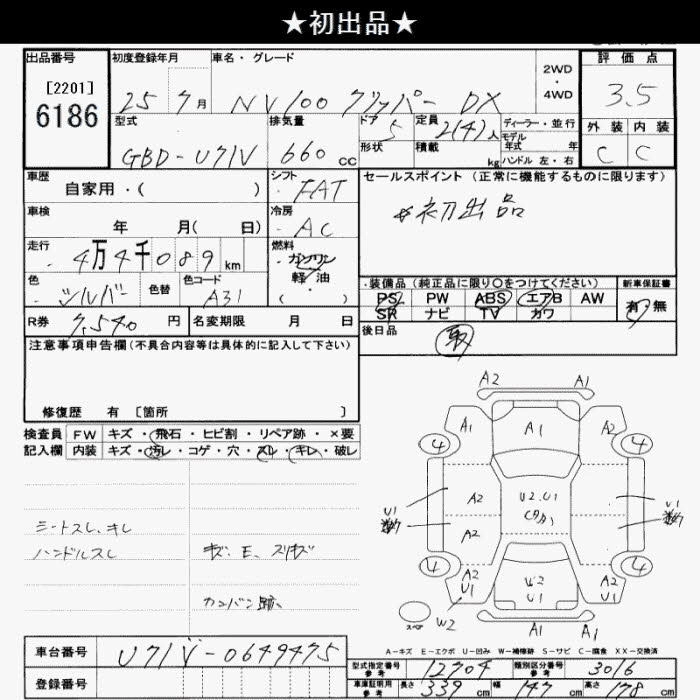 ★初出品★
出品番号 初度登録年月 車名・グレード 2WD・4WD 評価点
[2201] 6186 25 7月 NV100 クリッパー DX 3.5
型式 排気量 ドア 定員 ディーラー・並行 外装 内装
GBD-U71V 660cc 5 2(4)人 モデル年式 年 C C
形状 積載 kg ハンドル 左・右
車歴 自家用・( ) シフト FAT セールスポイント(正常に機能するものに限ります)
車検 年 月( 日) 冷房 AC *初出品
走行 4万4千089km 燃料 ガソリン 軽・油 ・( )
色 シルバー 色替 色コード A31 装備品(純正品に限り○をつけてください) 新車保証書
PS PW ABS エアB AW 有・無
SR ナビ TV カワ
R券 7,540円 名変期限 月 日 後日品 取
注意事項申告欄(不具合内容等は具体的に記入して下さい)
修復歴 有〔箇所 〕
検査員 FW キズ・飛石・ヒビ割・リペア跡・×要
記入欄 内装 キズ・汚レ・コゲ・穴・スレ・キレ・破レ
シートスレ、キレ
ハンドルスレ キズ、E、スリキズ
カンバン跡
A2 A1
A1 A1 A1
4 4
U1 A2 U2.U1 U1
A2
4 4
A2 U1 W2 U1 A2 U1
スペア W2 A1 A1
A-キズ E-エクボ U-凹み W-補修跡 S-サビ C-腐食 XX-交換済
車台番号 U71V-0649475
型式指定番号 参考 12704 類別区分番号 参考 3016
登録番号
車庫証明用 参考 長さ 339cm 幅 147cm 高さ 178cm